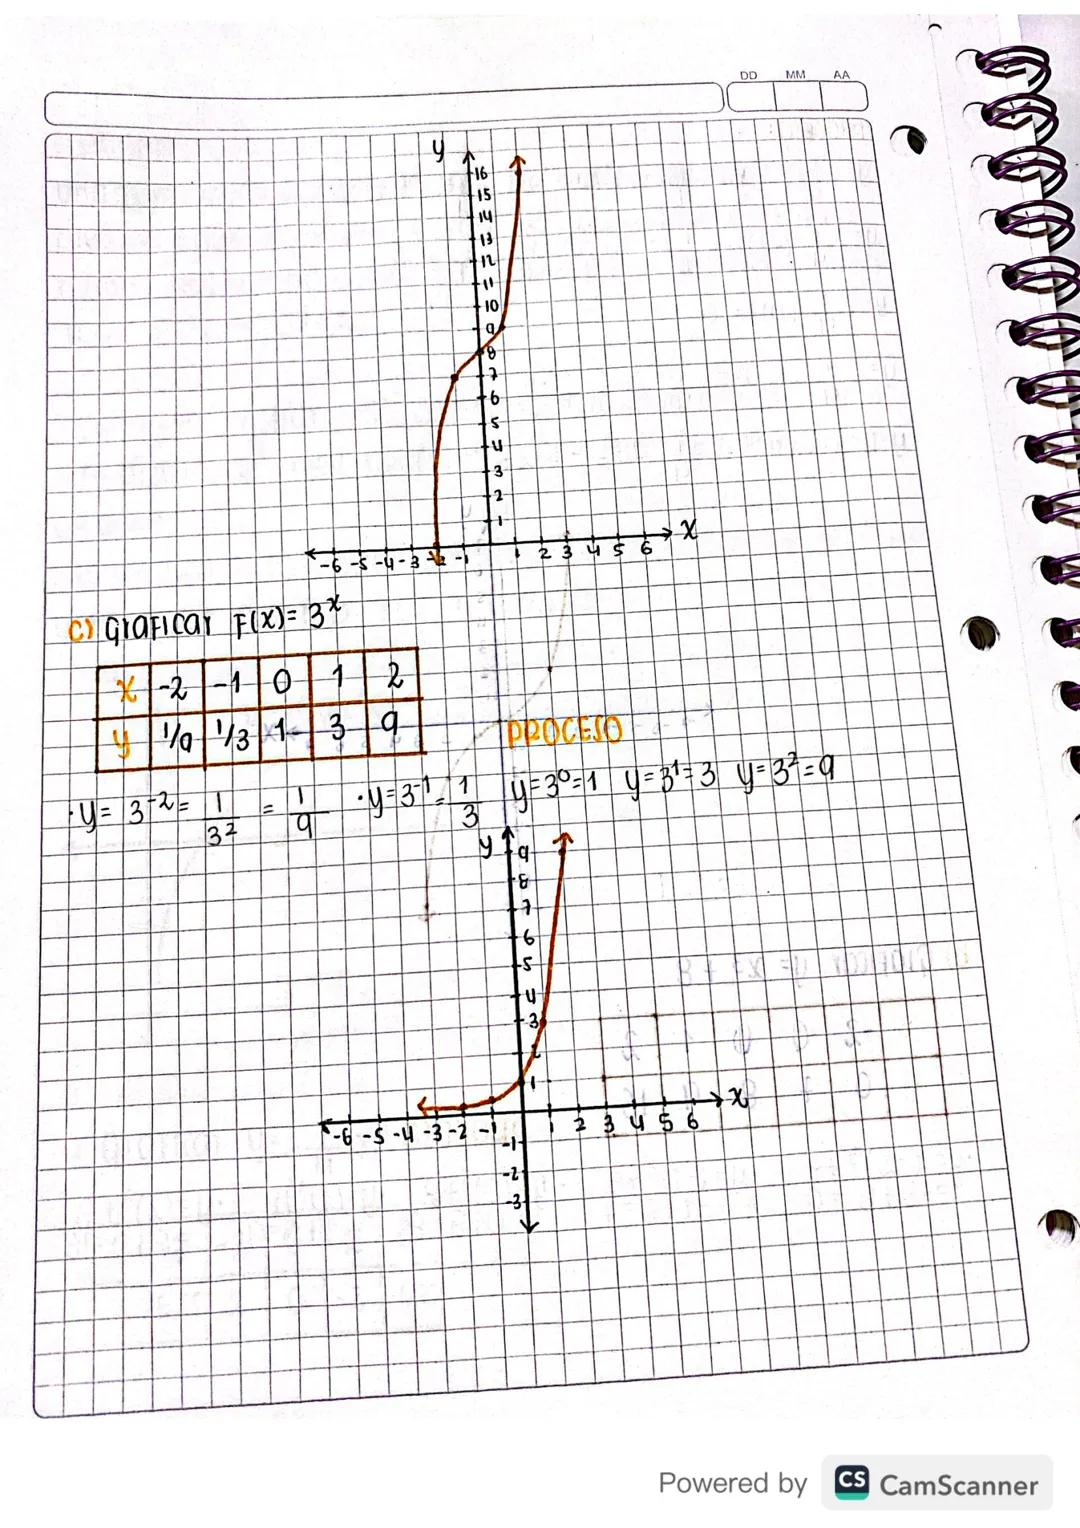 DD MM AA
y
16
15
14
13
12
11
10
9
8
7
6
5
4
3
2
1
-6 -5 -4 -3 -2 -1 1 2 3 4 5 6 x
c) Graficar F(x)= 3^x
x -2 -1 0 1 2
y 1/9 1/3 1 3 9
PROCESO
· y= 3^-2 = 1/3^2 = 1/9 · y=3^-1 = 1/3 y=3^0=1 y=3^1=3 y=3^2=9
y
9
8
7
6
5
4
3
2
1
-6 -5 -4 -3 -2 -1 1 2 3 4 5 6 x
-1
-2
-3
Powered by CS CamScanner